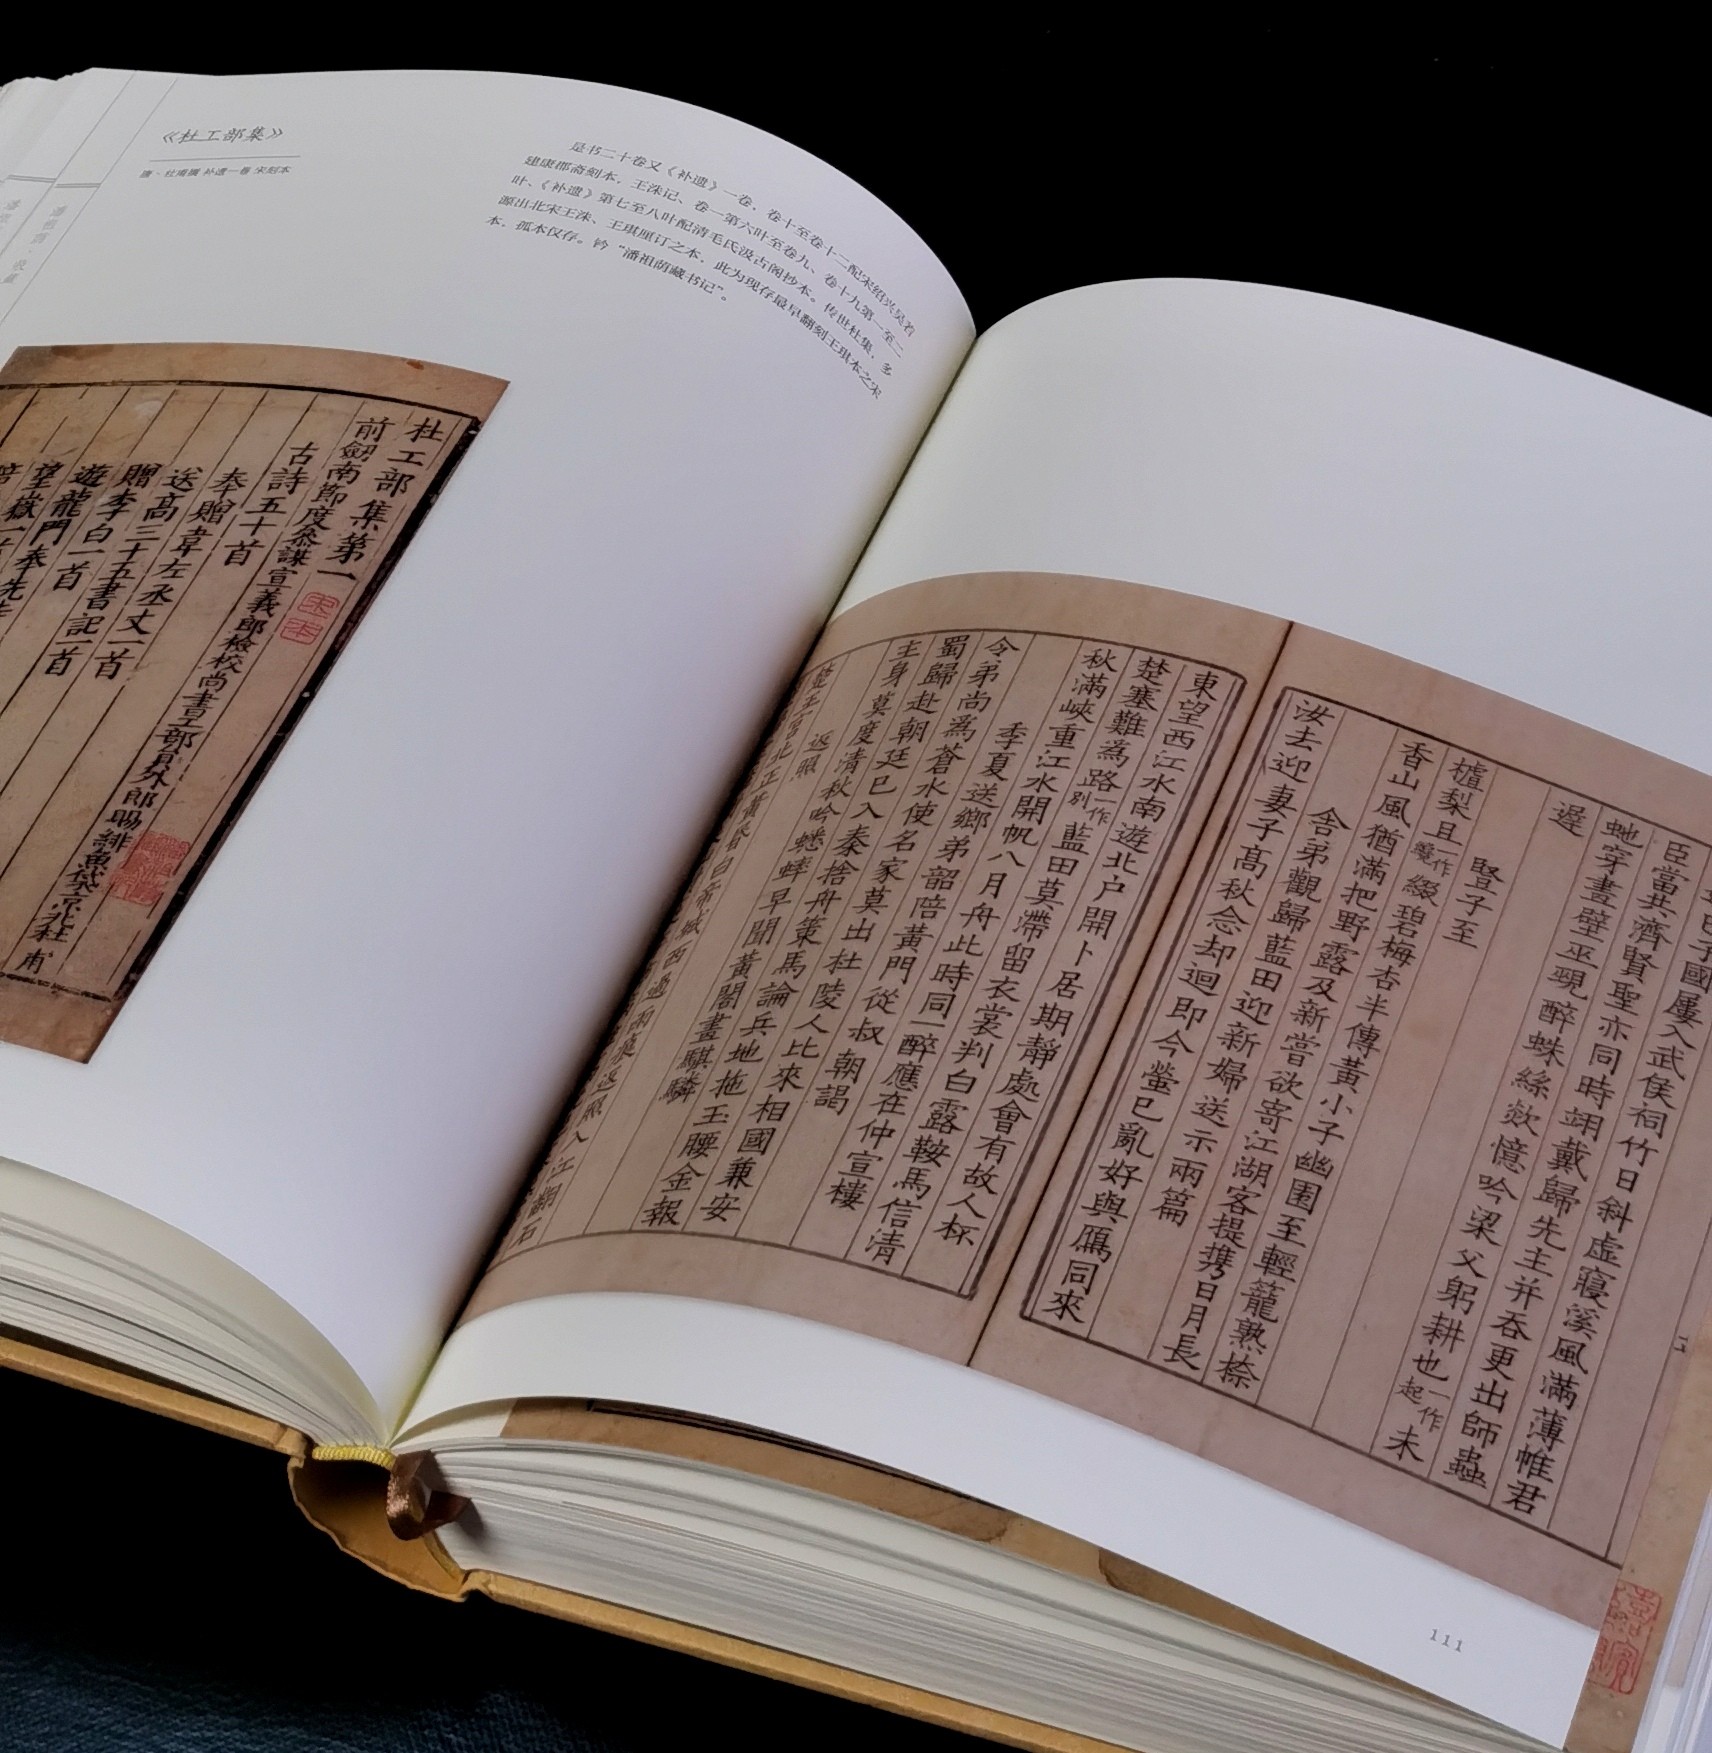 《杜工部集》
唐·杜甫撰 补遗一卷 宋刻本
是书二十卷又《补遗》一卷，卷十至卷十二配宋绍兴吴若
建康郡斋刻本，王洙记、卷一第六叶至卷九、卷十九第一至二
叶、《补遗》第七至八叶配清毛氏汲古阁抄本。传世杜集，多
源出北宋王洙、王琪厘订之本，此为现存最早翻刻王琪本之宋
本，孤本仅存。钤“潘祖荫藏书记”。
杜工部集第一
前劒南節度叅謀宣義郎檢校尚書工部員外郎賜緋魚袋京兆杜甫
古詩五十首
奉贈韋左丞丈一首
送高三十五書記一首
贈李白一首
遊龍門奉先寺
望嶽一首
宋本
臣當共濟賢聖亦同時翊戴歸先主并吞更出師蟲
蛇穿畫壁巫覡醉蛛絲欻憶吟梁父躬耕也一作起未
遲
豎子至
樝梨且一作纔綴碧梅杏半傳黃小子幽園至輕籠熟捺
香山風猶滿把野露及新嘗欲寄江湖客提携日月長
舎弟觀歸藍田迎新婦送示兩篇
汝去迎妻子高秋念却迴即今螢已亂好與鴈同來
東望西江水南遊北户開卜居期靜處會有故人杯
楚塞難為路一作别藍田莫滯留衣裳判白露鞍馬信清
秋滿峽重江水開帆八月舟此時同一醉應在仲宣樓
季夏送鄉弟韶陪黃門從叔朝謁
令弟尚為蒼水使名家莫出杜陵人比來相國兼安
蜀歸赴朝廷已入秦捨舟策馬論兵地拖玉腰金報
主身莫度清秋吟蟋蟀早聞黃閤畫騏驎
返照
楚王宮北正黃昏白帝城西過雨痕返照入江翻石
111